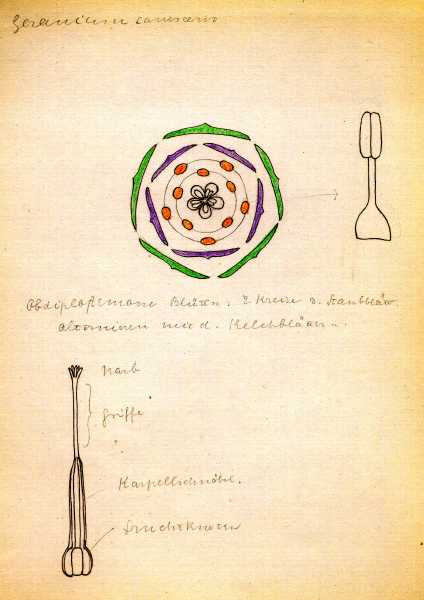 Geranium
Obdiplostemone Blüten: 2 Kreise v. Staubblätt.
alternieren mit d. Kelchblättern.
Narb
Griffe
Karpellschnäbel.
Fruchtknoten